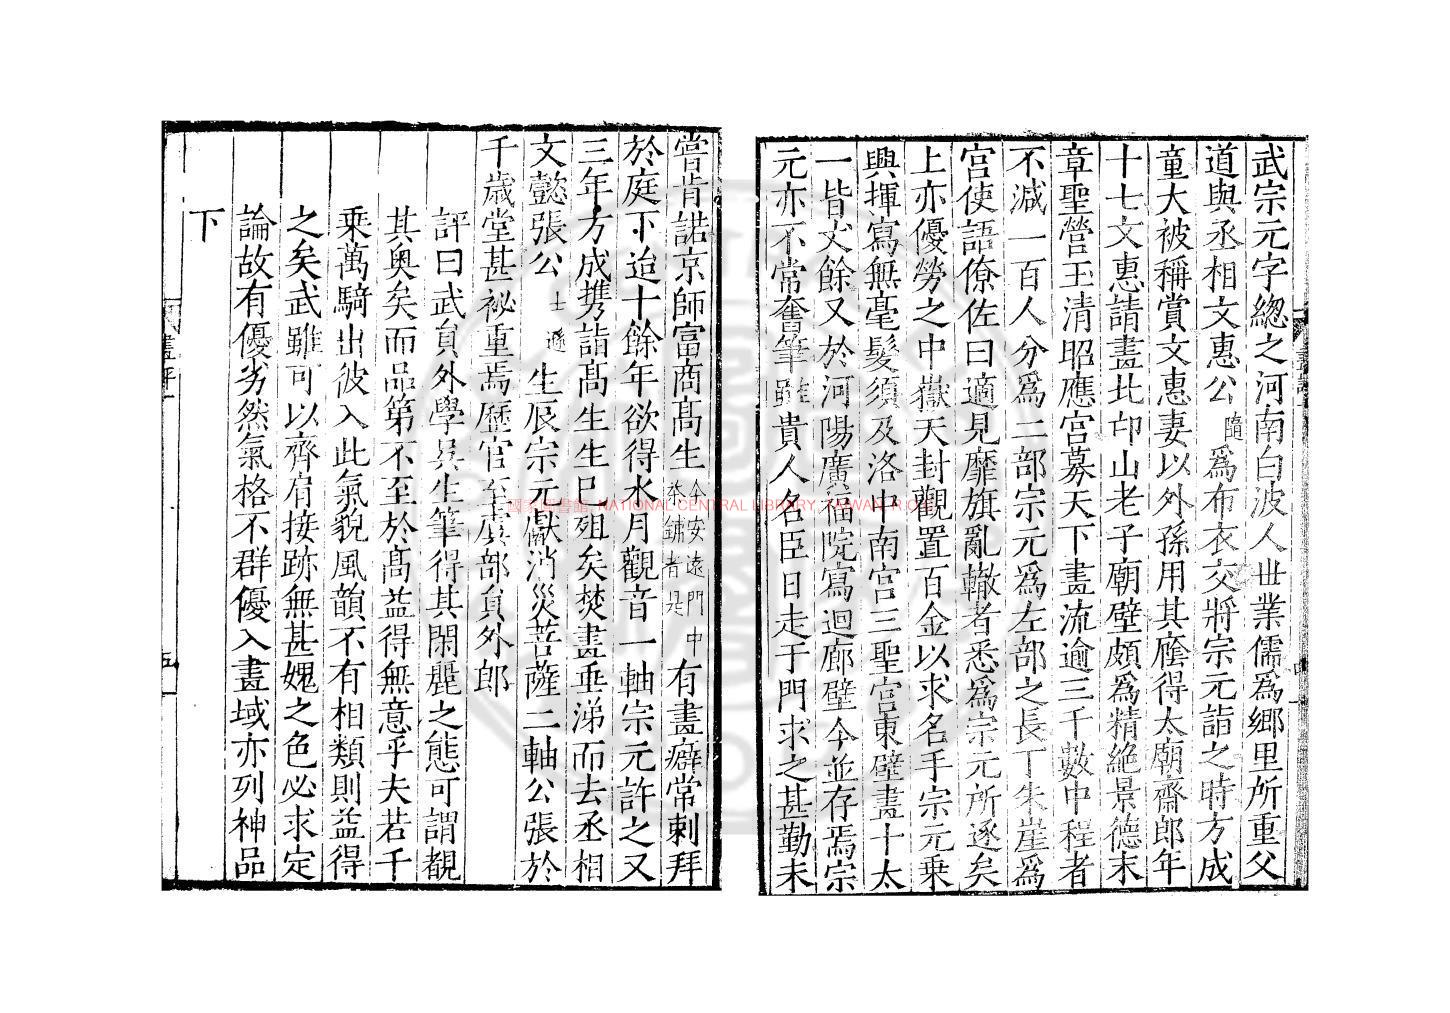 武宗元字總之河南白波人世業儒爲鄉里所重父
道與丞相文惠公隨爲布衣交將宗元詣之時方成
童大被稱賞文惠妻以外孫用其廕得太廟齋郎年
十七文惠請畫北邙山老子廟壁頗爲精絶景德末
章聖營玉清昭應宫募天下畫流逾三千數中程者
不減一百人分爲二部宗元爲左部之長丁朱崖爲
宫使語僚佐曰適見靡旗亂轍者悉爲宗元所逐矣
上亦優勞之中嶽天封觀置百金以求名手宗元乗
興揮寫無毫髮須及洛中南宫三聖宫東壁畫十太
一皆丈餘又於河陽廣福院寫迴廊壁今並存焉宗
元亦不常奮筆雖貴人名臣日走于門求之甚勤未
嘗肯諾京師富商髙生今安遠門中柰鋪者是有畫癖常剌拜
於庭下迨十餘年欲得水月觀音一軸宗元許之又
三年方成携詣髙生生已殂矣焚畫垂涕而去丞相
文懿張公士遜生辰宗元獻消災菩薩二軸公張於
千歲堂甚祕重焉歷官至虞部貟外郎
評曰武貟外學吳生筆得其閑麗之態可謂覩
其奥矣而品第不至於髙益得無意乎夫若千
乗萬騎出彼入此氣貌風韻不有相類則益得
之矣武雖可以齊肩接跡無甚媿之色必求定
論故有優劣然氣格不群優入畫域亦列神品
下
畫評一
五
國家圖書館 NATIONAL CENTRAL LIBRARY, TAIWAN, R.O.C